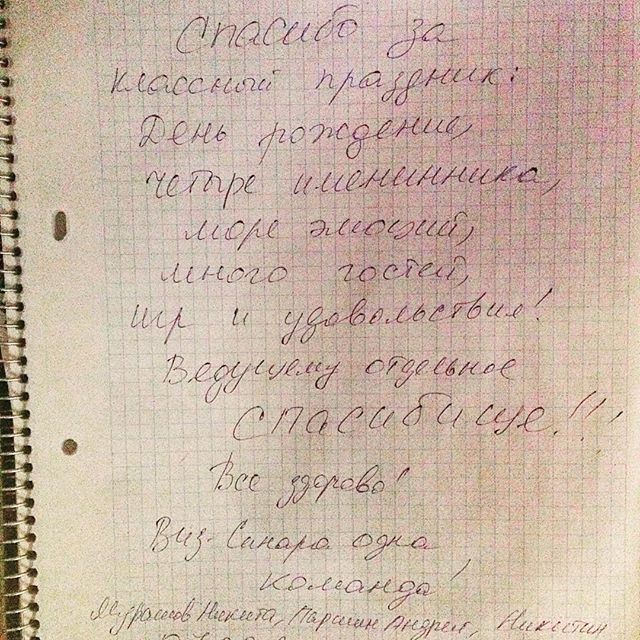 Спасибо за
классный праздник:
День рождение,
четыре именинника,
море эмоций,
много гостей,
игр и удовольствия!
Ведущему отдельное
СПАСИБИЩЕ!!!
Все здорово!
Виз-Синара одна
команда!
Никита, Паршин Андрей, Никитин